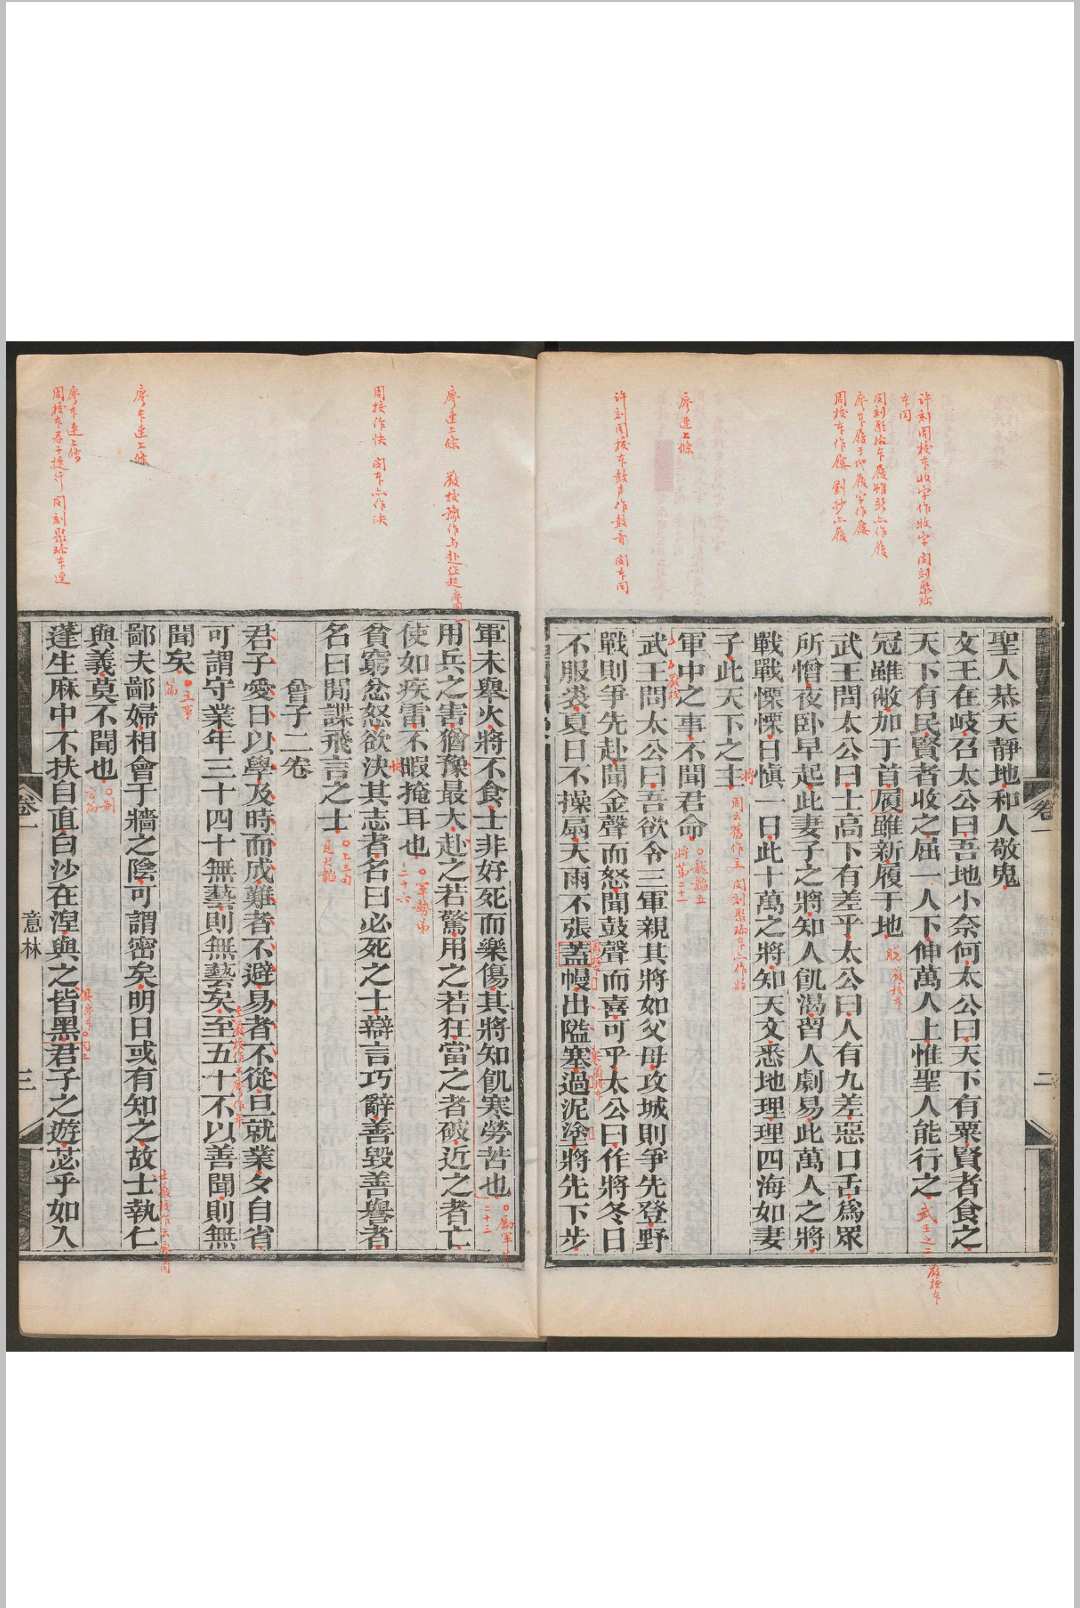 聖人恭天靜地和人敬鬼
文王在岐召太公曰吾地小奈何太公曰天下有粟賢者食之
天下有民賢者收之屈一人下伸萬人上惟聖人能行之
冠雖敝加于首履雖新履于地
武王問太公曰士高下有差乎太公曰人有九差惡口舌爲眾
所憎夜卧早起此妻子之將知人飢渴習人劇易此萬人之將
戰戰慄慄日愼一日此十萬之將知天文悉地理理四海如妻
子此天下之主
軍中之事不聞君命
武王問太公曰吾欲令三軍親其將如父母攻城則爭先登野
戰則爭先赴聞金聲而怒聞鼓聲而喜可乎太公曰作將冬日
不服裘夏日不操扇天雨不張蓋幔出隘塞過泥塗將先下步
卷一
二
軍未舉火將不食士非好死而樂傷其將知飢寒勞苦也
用兵之害猶豫最大赴之若驚用之若狂當之者破近之者亡
使如疾雷不暇掩耳也
貧窮忿怒欲決其志者名曰必死之士辯言巧辭善毀善譽者
名曰閒諜飛言之士
曾子二卷
君子愛日以學及時而成難者不避易者不從旦就業夕自省
可謂守業年三十四十無藝則無藝矣至五十不以善聞則無
聞矣
鄙夫鄙婦相會于牆之陰可謂密矣明日或有知之故士執仁
與義莫不聞也
蓬生麻中不扶自直白沙在湼與之皆黑君子之遊苾乎如入
卷一
意林
三
許刻周校本收字作牧字 聞刻聚珍
本同
周校本作屨 劉抄亦履
廖連上條
許刻周校本鼓声作鼓音 聞本同
廖連上條
周校作快 聞本亦作决
廖本連上條
廖本連上條